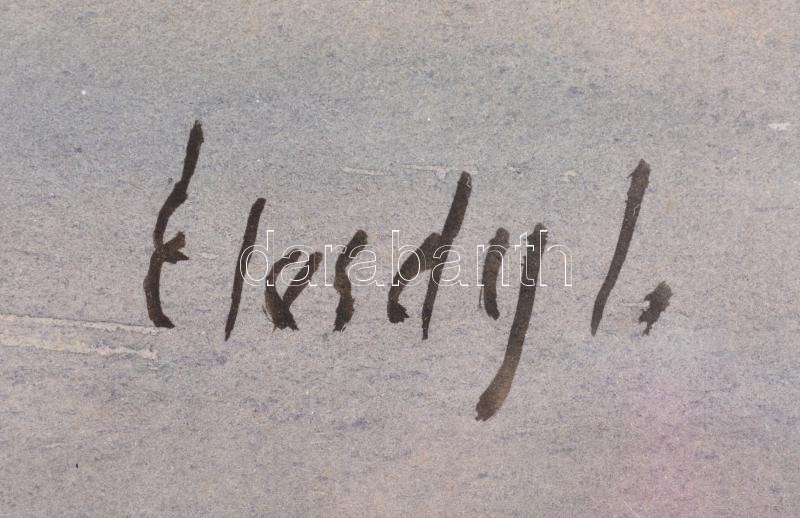 Elesdy l.
darabanth